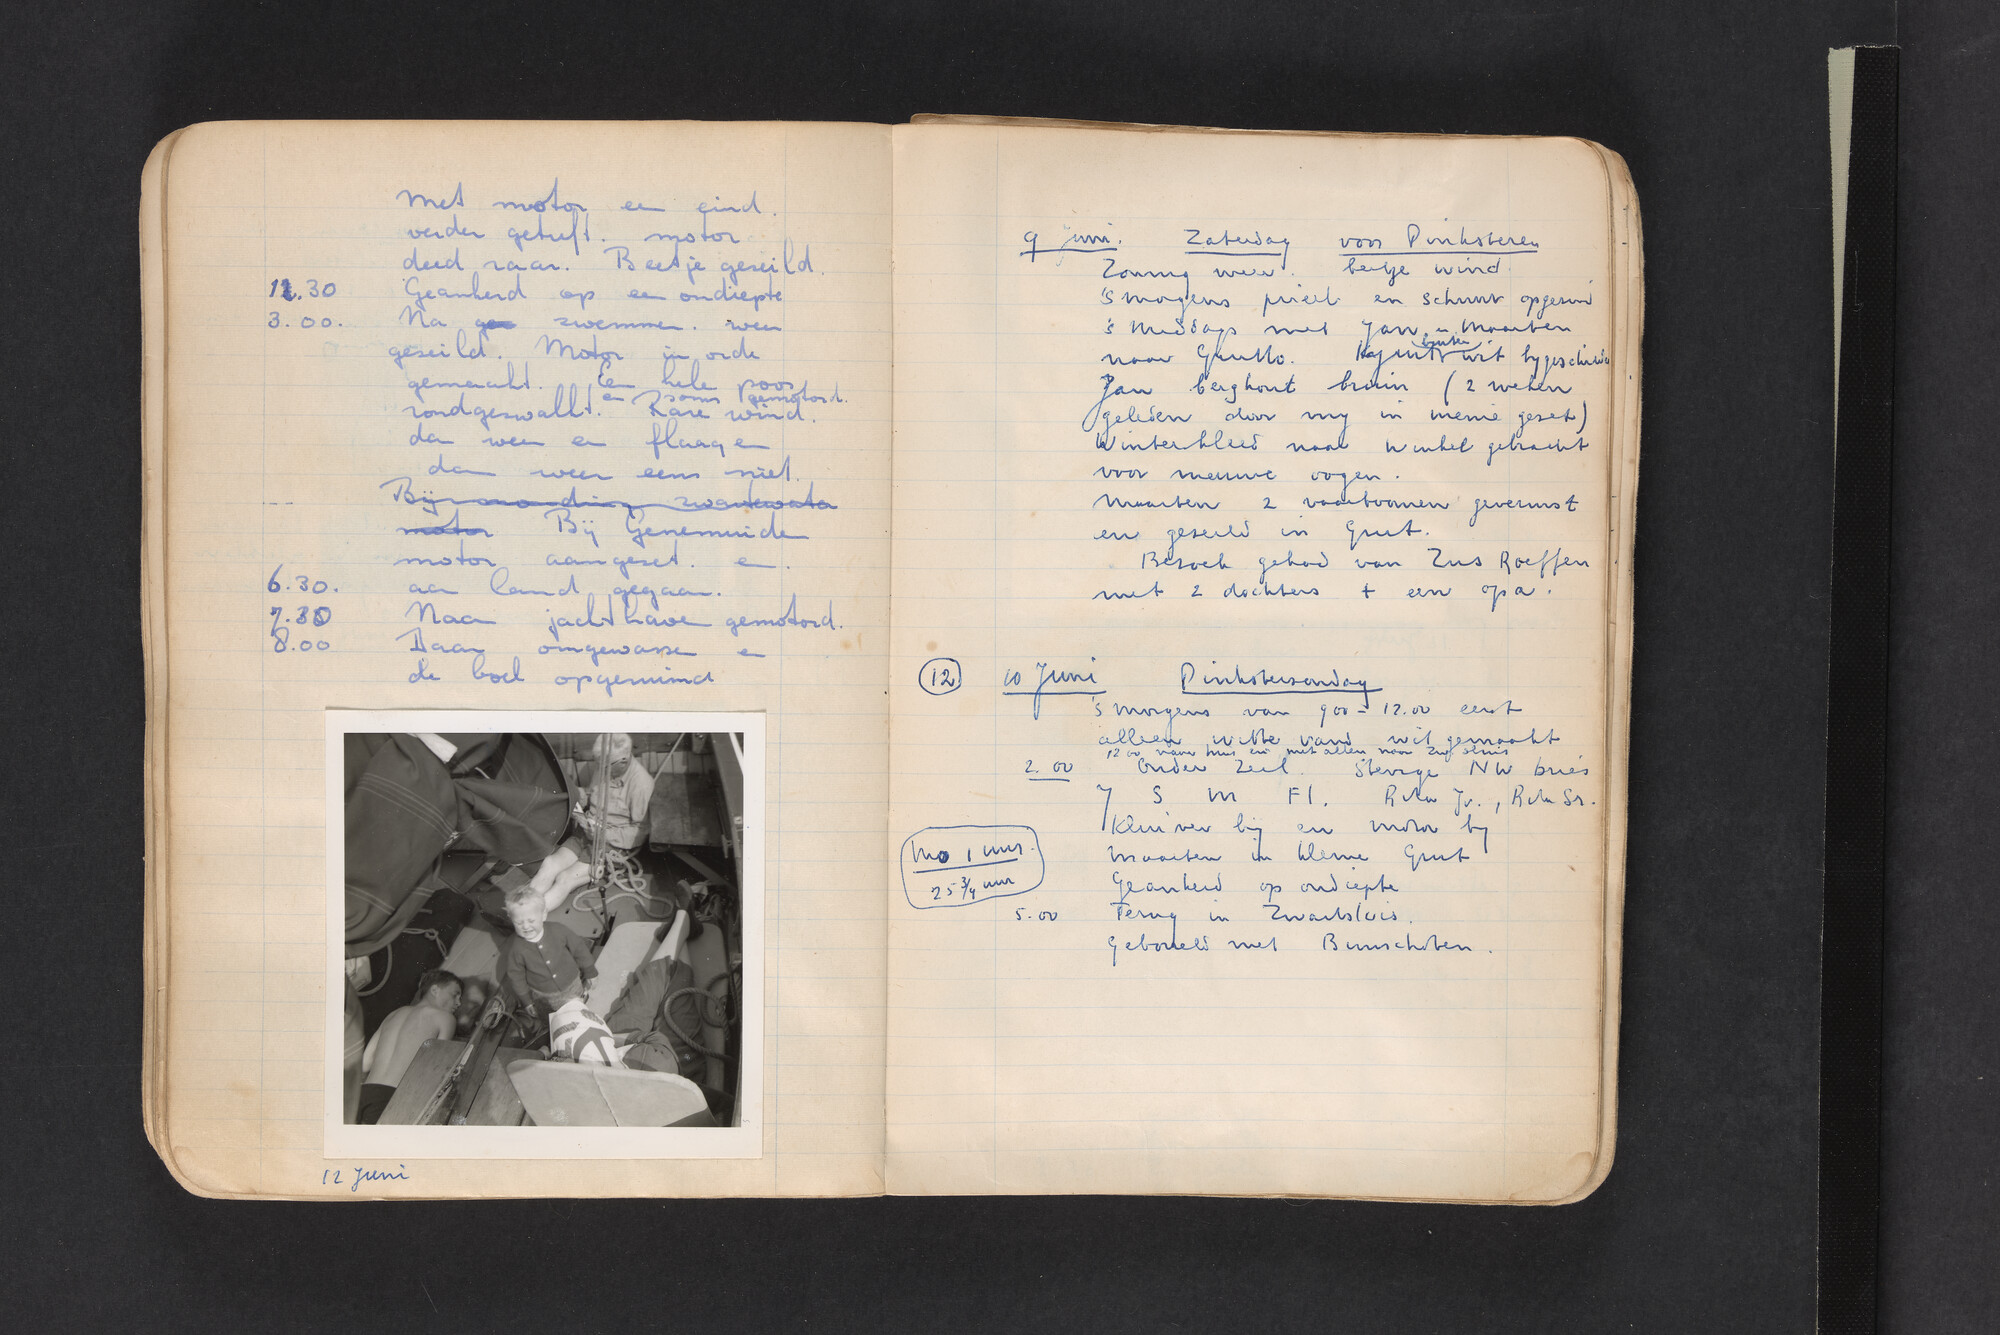 Met motor een eind
verder getuft. motor
deed raar. Beetje geseild.
11.30 Geankerd op een ondiepte
3.00. Na zwemmen. weer
geseild. Motor in orde
gemaakt. Een hele poos
en soms gemotord.
rondgeswalkt. Rare wind.
dan weer en flaagen
dan weer eens niet.
Bij monding zwartewater
motor Bij Genemuiden
motor aangeset. en.
6.30. aan land gegaan.
7.30 Naar jachthaven gemotord.
8.00 Daar omgewassen en
de boel opgeruimd
12 Juni
9 Juni. Zaterdag voor Pinksteren
Zonnig weer. beetje wind.
's morgens prieel en schuur opgeruimd
's Middags met Jan en Maarten
naar Grutto. Kajuit wit bygeschilderd
buiten
Jan berghout bruin (2 weken
geleden door my in menie geset)
Winterkleed naar winkel gebracht
voor nieuwe oogen.
Maarten 2 vaarboomen gevernist
en geseild in Grut.
Bezoek gehad van Zus Roeffen
met 2 dochters + een opa.
(12) 10 Juni Pinksterzondag
's morgens van 900 - 12.00 eerst
alleen witte rand wit gemaakt
12.00 naar huis en met allen naar Zwsluis
2.00 Onder Zeil. Stevige NW bries
J S M Fl. Rita Jr., Rita Sr.
Kluiver bij en motor by
Mo 1 uur.
25 3/4 uur
Maarten in kleine Grut
Geankerd op ondiepte
5.00 Terug in Zwartsluis.
Geborreld met Bunschoten.